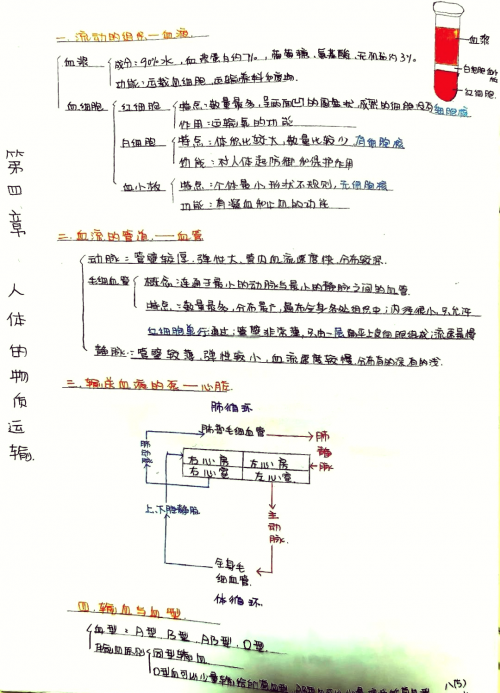 第四章 人体的物质运输
一.流动的组织—血液
血浆
成分:90%水,血浆蛋白约7%,葡萄糖,氨基酸,无机盐约
功能:运载血细胞,运输养料和废物.
血浆
白细胞
红细胞.
血细胞
红细胞
特点:数量最多,呈两面凹的圆盘状,成熟的细胞没有细胞核
作用:运输氧的功能
白细胞
特点:体积比较大,数量比较少,有细胞核
功能:对人体起防御和保护作用
血小板
特点:个体最小形状不规则,无细胞核
功能:有凝血和止血的功能
二.血流的管道.——血管
动脉:管壁较厚,弹性大,管内血流速度快,分布较深.
毛细血管
概念:连通于最小的动脉与最小的静脉之间的血管.
特点:数量最多,分布最广,遍布全身各处组织中;内径很小,只允许
红细胞单行通过;管壁非常薄,只由一层扁平上皮细胞组成;流速最慢
静脉:管壁较薄,弹性较小,血流速度较慢,分布有的深有的浅.
三.输送血液的泵——心脏.
肺循环
肺部毛细血管
肺动脉
肺静脉
右心房 左心房
右心室 左心室
上、下腔静脉
主动脉.
全身毛细血管.
体循环.
四.输血与血型.
血型:A型,B型,AB型,O型.
输血原则
同型输血
O型血可以少量输给
八(5)